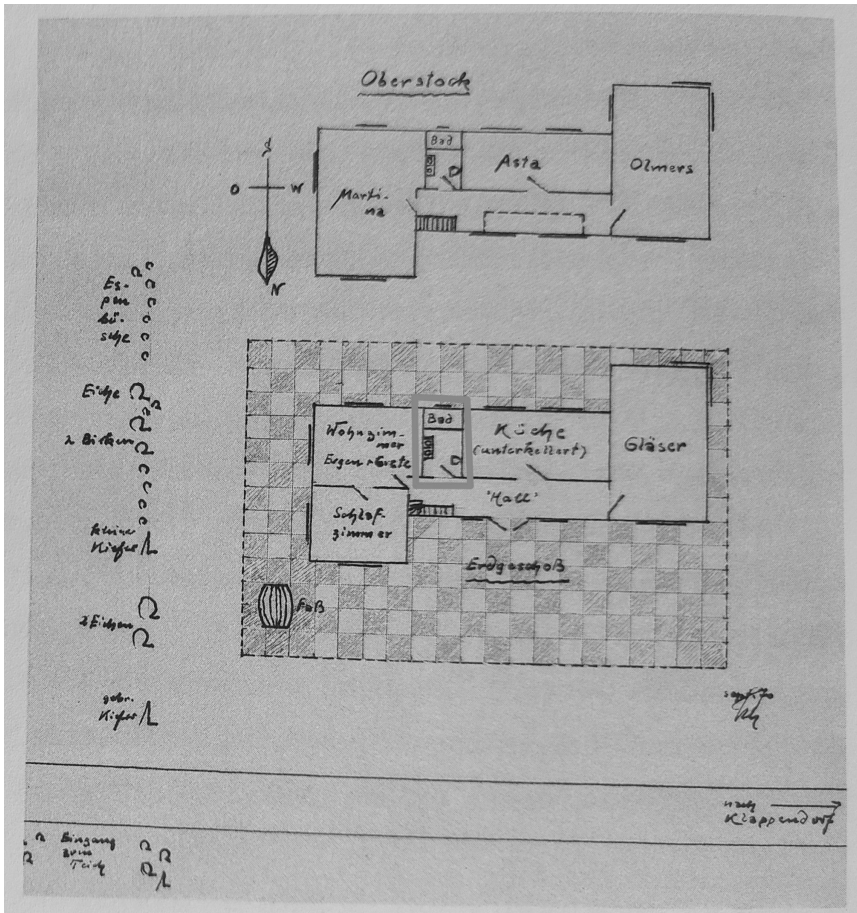 Oberstock
Bad
Asta
Olmers
Marti-
na
S
O
W
N
Es-
pen
bü-
sche
Eiche
2 Birken
kleine
Kiefer
2 Eichen
gebr.
Kiefer
Wohnzim-
mer
Eugen + Grete
Bad
Küche
(unterkellert)
Gläser
Schlaf-
zimmer
'Hall'
Erdgeschoß
Faß
nach
Klappendorf
Eingang
zum
Teich